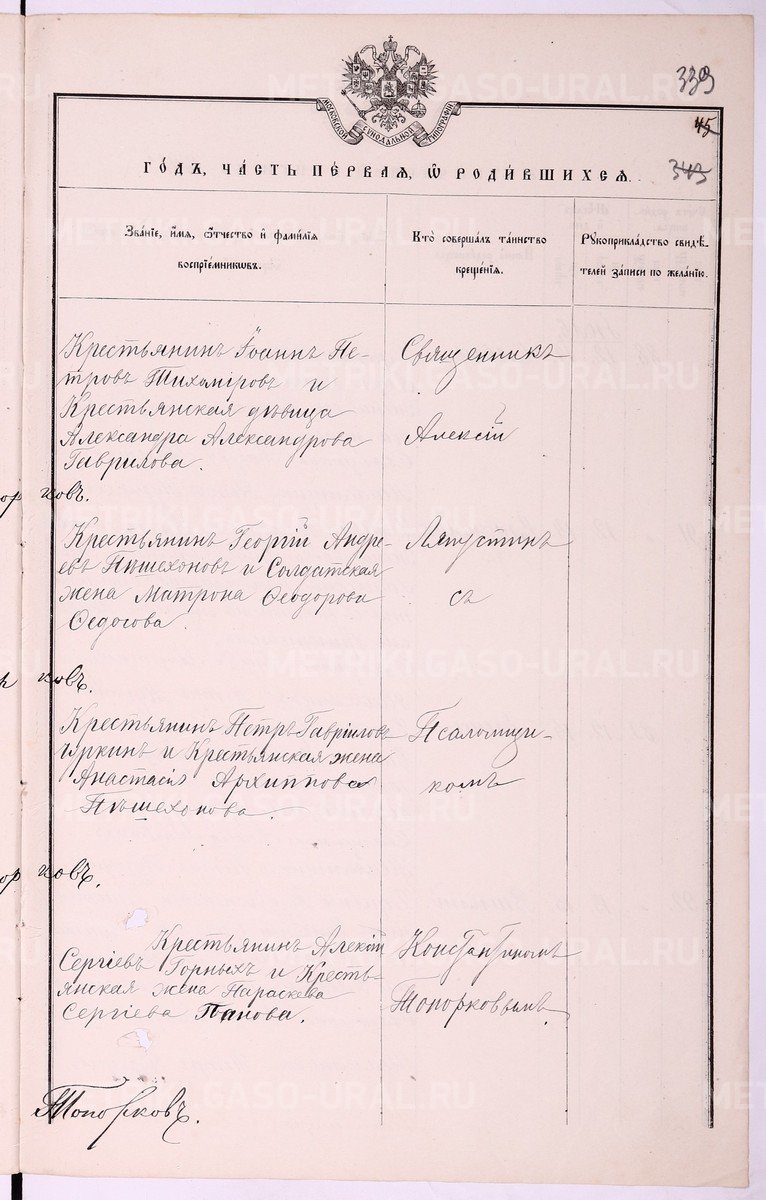 METRIKI.GASO-URAL.RU
339
МОСКОВСКОЙ СѴНОДАЛЬНОЙ ТИПОГРАФІИ
45
ГО́ДЪ, ЧА́СТЬ ПЕ́РВАЯ, Ѽ РОДИ́ВШИХСЯ.
343
Зва́ніе, и́мя, ѻ́тчество и҆ фами́лія
воспріе́мниковъ.
Кто̀ соверша́лъ та́инство
креще́нія.
Рꙋкоприкла́дство свидѣ́-
телей за́писи по жела́нію.
Крестьянинъ Іоаннъ Пе-
тровъ Тихоміровъ и
Крестьянская дѣвица
Александра Александрова
Гаврилова.
Священникъ
Алексій
ор ковъ.
Крестьянинъ Георгій Андре-
евъ Пѣшехоновъ и Солдатская
жена Матрона Ѳеодорова
Ѳедосова.
Ляпустинъ
съ
ковъ.
Крестьянинъ Петръ Гавріиловъ
и Крестьянская жена
Анастасія Архиппова
Пѣшехонова.
Псаломщи-
комъ
ор ковъ.
Крестьянинъ Алексій
Сергіевъ Горныхъ и Кресть-
янская жена Параскева
Сергіева Попова.
Константиномъ
Топорковымъ.
Топорковъ.